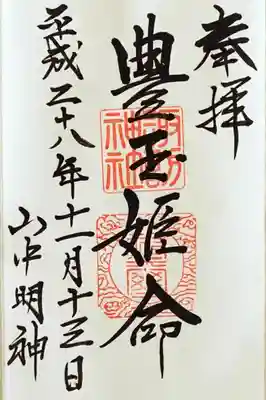 奉拝
豊玉姫命
平成二十八年十一月十三日
山中明神